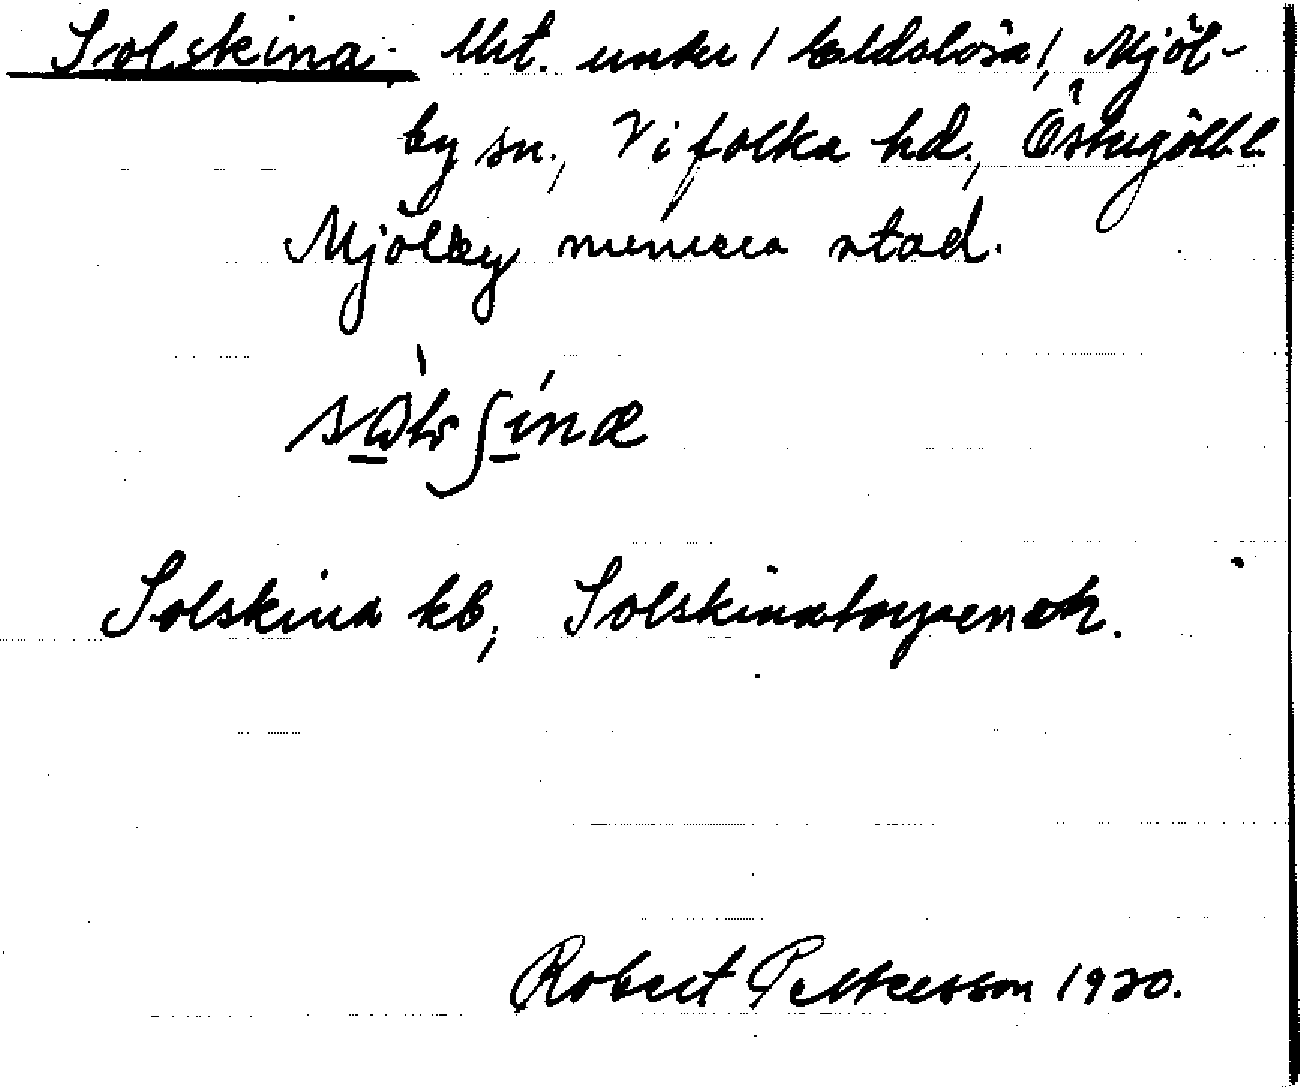 Solskina Urt. under 1 Eldslösa 1, Mjöl-
by sn., Vifolka hd., Östergötl. l.
Mjölby numera stad.
Solskina kb, Solskinatorpen ek.
Robert Pettersson 1920.